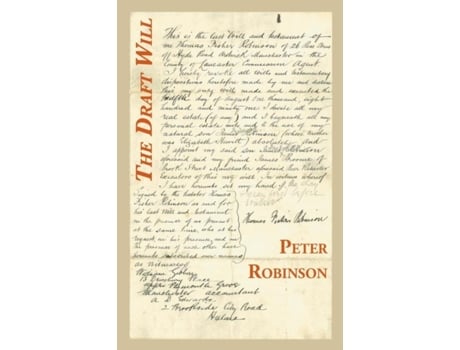 THE DRAFT WILL
This is the last Will and Testament of
me Thomas Fisher Robinson of
Hyde Road Manchester in the
County of Lancaster Commission Agent
I hereby revoke all Wills and testamentary
dispositions heretofore made by me and declare
this my only will made and executed the
twelfth day of August one thousand, eight
hundred and ninety one I devise all my
real estate (if any) and I bequeath all my
personal estate unto and to the use of my
natural son James Robinson (whose mother
was Elizabeth Hewitt) absolutely And
I appoint my said son James Robinson
aforesaid and my friend James of
Brook Street Manchester aforesaid
Executors of this my will In witness whereof
I have hereunto set my hand the day
Signed by the testator Thomas
Fisher Robinson as and for
his last Will and testament
in the presence of us present
at the same time, who at his
request in his presence, and in
the presence of each other have
hereunto subscribed our names
as witnesses
Thomas Fisher Robinson
William
Manchester accountant
A. D. Edwards
2 Brookside City Road
Hulme
PETER
ROBINSON